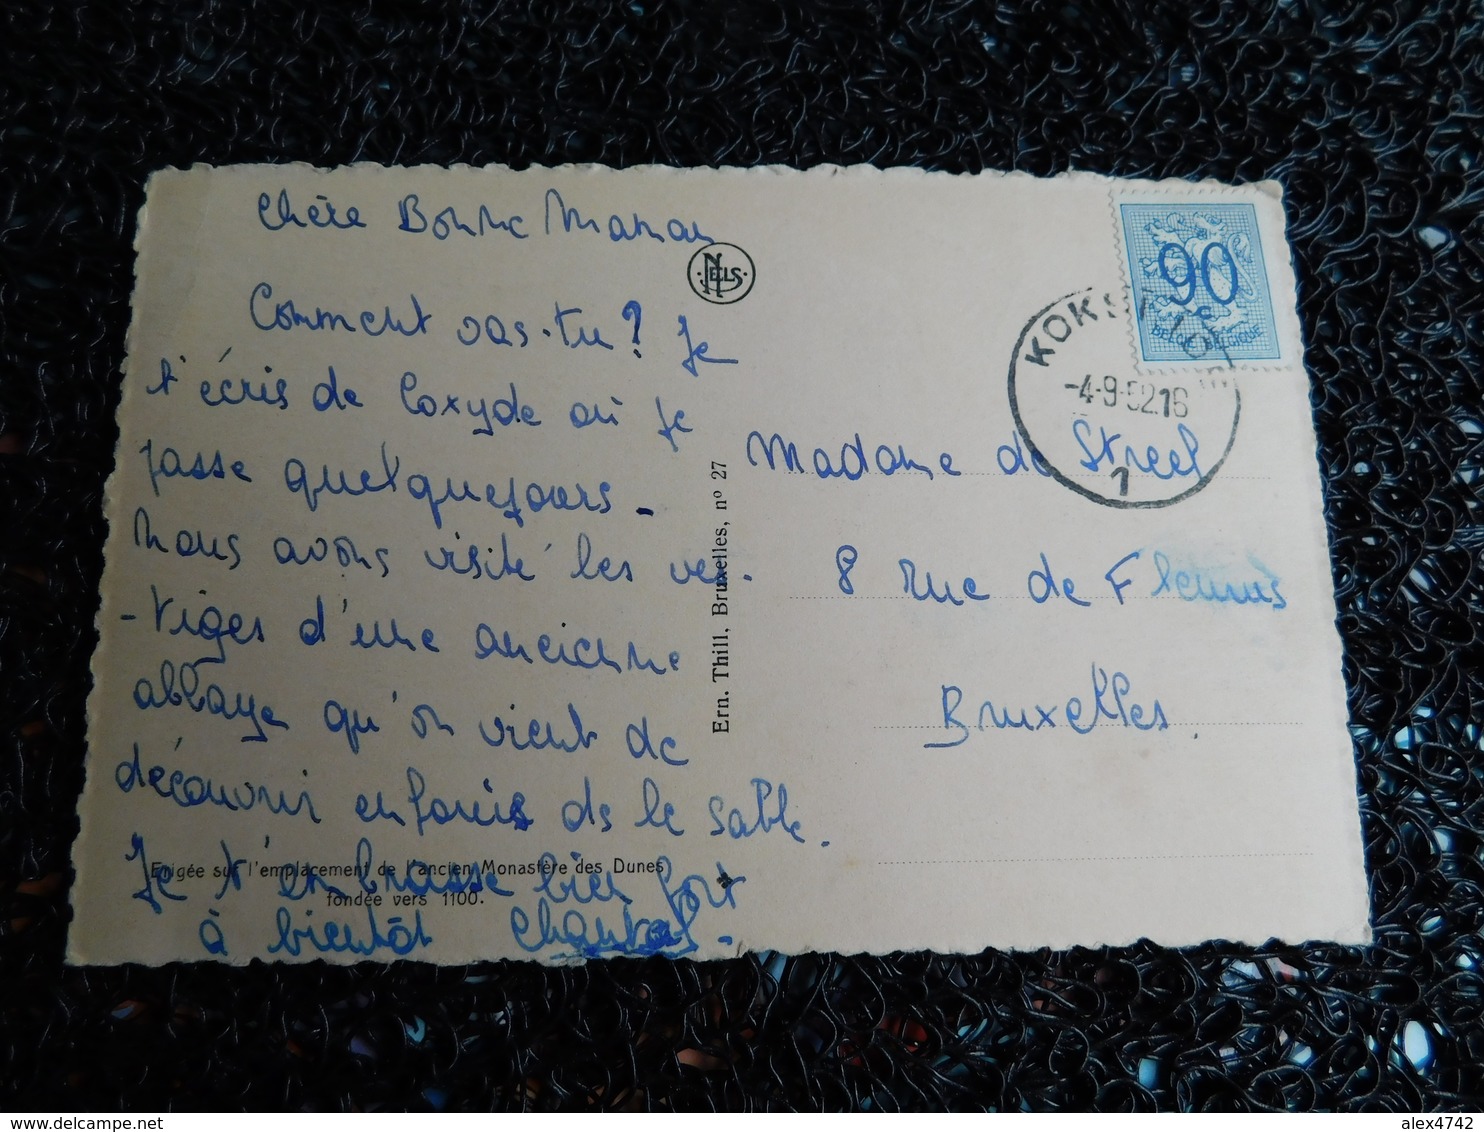 Chère Bonne Maman
Comment vas-tu? Je
t'écris de Coxyde où je
passe quelques jours -
Nous avons visité les ves-
-tiges d'une ancienne
abbaye qu'on vient de
découvrir enfouis ds le sable.
Je t'embrasse bien fort
à bientôt Chantal -
Erigée sur l'emplacement de l'ancien Monastère des Dunes
fondée vers 1100.
NELS
Ern. Thill, Bruxelles, nº 27
90
c
BELGIE BELGIQUE
-4-9-52.16
1
Madame de Streel
8 rue de Fleurus
Bruxelles
delcampe.net
alex4742